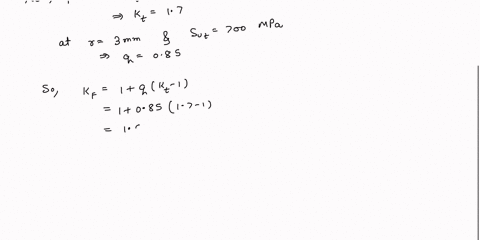 ⇒ Kt = 1.7
at r = 3mm & Sut = 700 MPa
⇒ q = 0.85
So, KF = 1 + q (Kt - 1)
= 1 + 0.85 (1.7 - 1)
= 1.